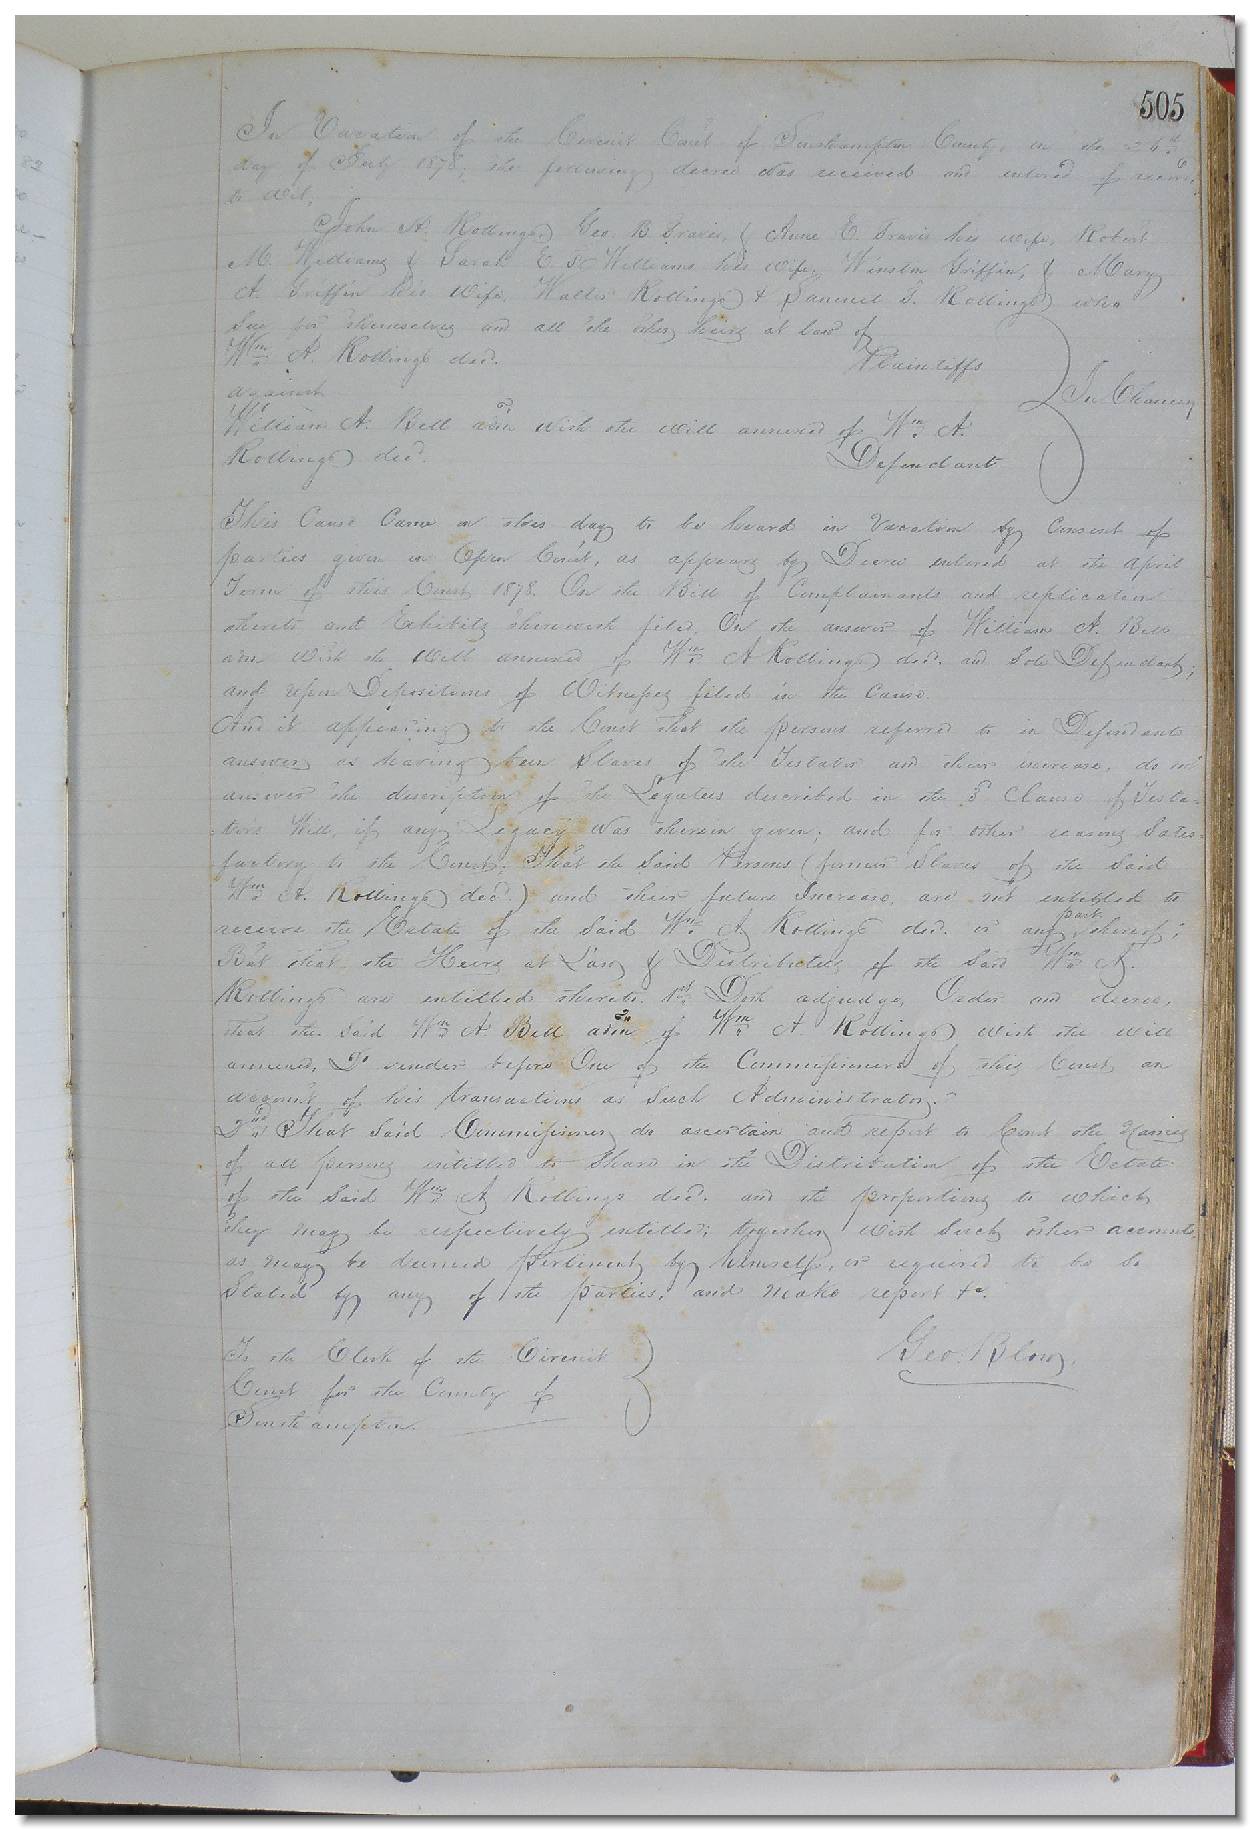 505
In Vacation of the Circuit Court of Southampton County, on the 26th
day of July 1878, the following decree was received and entered of record
to wit,
John A. Rollings, Geo. B Travis, & Anne E. Travis his wife, Robert
M. Williams & Sarah E. Williams his wife, Winston Griffin, & Mary
A. Griffin his wife, Walter Rollings & Samuel T. Rollings who
Sue for themselves and all the other heirs at law of
Wm A. Rollings decd. Plaintiffs
against In Chancery
William A. Bell admr with the will annexed of Wm A.
Rollings decd. Defendant
This Cause Came on this day to be heard in Vacation by Consent of
parties given in Open Court, as appears by Decree entered at the April
Term of this Court 1878. On the Bill of Complainants and replication
thereto and Exhibits therewith filed, On the answer of William A. Bell
adm with the Will annexed of Wm A Rollings decd. and Sole Defendant;
and upon Depositions of Witnesses filed in the Cause.
And it appearing to the Court that the persons referred to in Defendants
answer as having been Slaves of the Testator and their increase, do not
answer the description of the Legatees described in the Clause of Testa-
tors Will, if any Legacy was therein given; and for other reasons Satis-
factory to the Court; That the Said Persons (former Slaves of the Said
Wm A. Rollings decd) and their future Increase, are not entitled to
receive the Estate of the Said Wm A Rollings decd. or any part thereof;
But that the Heirs at Law & Distributees of the Said Wm A.
Rollings are entitled thereto. 1st Doth adjudge, Order and decree,
that the Said Wm A. Bell admr of Wm A Rollings with the will
annexed, Do render before One of the Commissioners of this Court, an
account of his transactions as Such Administrator.
2nd That Said Commissioner do ascertain and report to Court the Names
of all persons entitled to Share in the Distribution of the Estate
of the Said Wm A Rollings decd. and the proportions to which
they may be respectively entitled; together with Such other accounts
as may be deemed pertinent by himself, or required to be be
Stated by any of the parties, and make report &c.
To the Clerk of the Circuit Geo. Blow,
Court for the County of
Southampton.